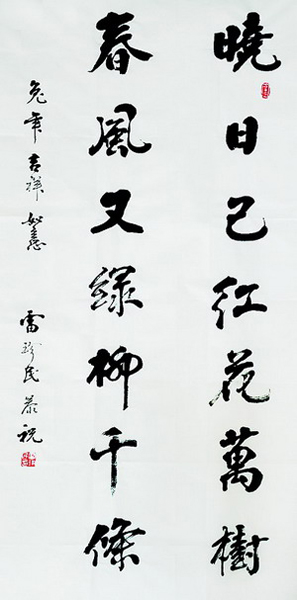 曉日已紅花萬樹
春風又綠柳千條
兔年吉祥如意
雷珍民恭祝